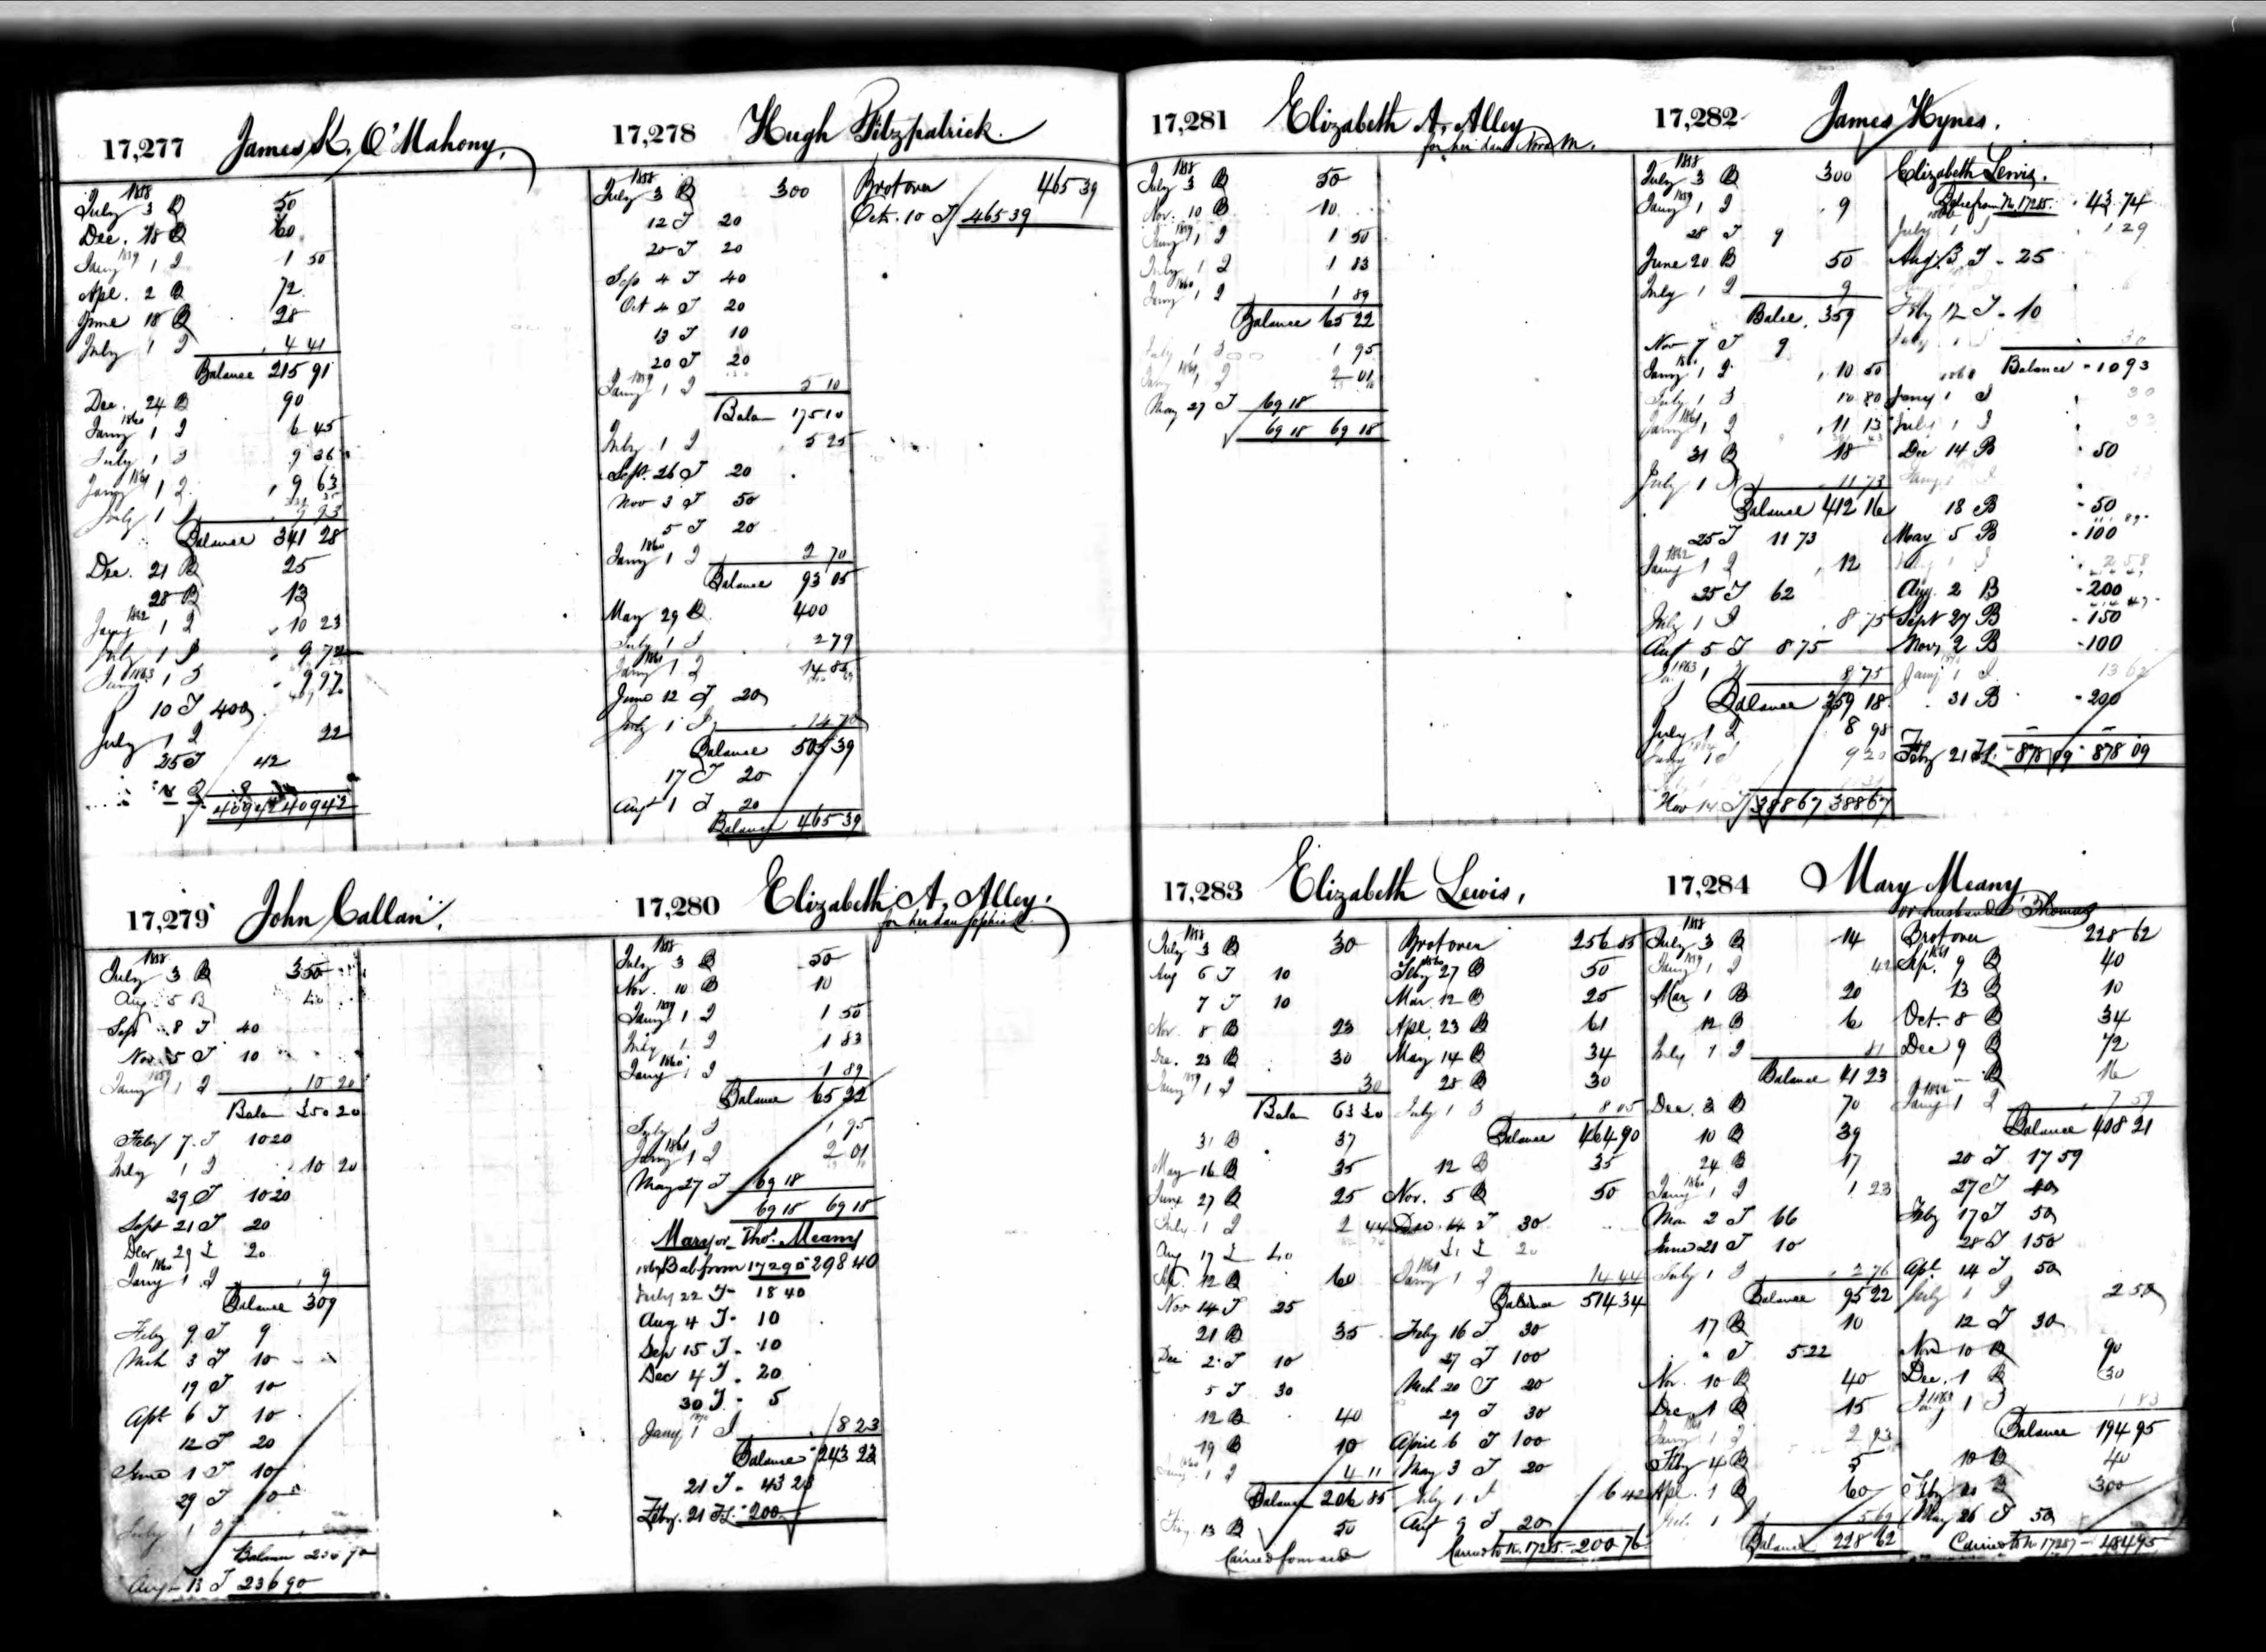 17,277 James K. O'Mahony,
1858
July 3 B 50
Dec. 18 B 60
Jany 1859 1 I 1 50
Apl. 2 B 72
June 18 B 28
July 1 I 4 41
Balance 215 91
Dec. 24 B 90
Jany 1860 1 I 6 45
July 1 I 9 36
Jany 1861 1 I 9 63
July 1 I 9 93
Balance 341 28
Dec. 21 B 25
28 B 13
Jany 1862 1 I 10 23
July 1 I 9 72
Jany 1863 1 I 9 97
10 T 400
July 1 I 22
25 T 42
409 42 409 42
17,278 Hugh Fitzpatrick.
1858
July 3 B 300
12 T 20
20 T 20
Sep 4 T 40
Oct 4 T 20
13 T 10
20 T 20
Jany 1859 1 I 5 10
Balan 175 10
July 1 I 5 25
Sept. 26 T 20
Nov 3 T 50
5 T 20
Jany 1860 1 I 2 70
Balance 93 05
May 29 B 400
July 1 I 2 79
Jany 1861 1 I 14 85
June 12 T 20
July 1 I 14 70
Balance 505 39
17 T 20
Augt 1 T 20
Balance 465 39
Brot over 465 39
Oct. 10 T 465 39
17,279 John Callan.
1858
July 3 B 350
Aug 5 B 40
Sept 8 T 40
Nov 5 T 10
Jany 1859 1 I 10 20
Balan 350 20
Feby 7 T 10 20
July 1 I 10 20
29 T 10 20
Sept 21 T 20
Decr 29 T 20
Jany 1860 1 I 9
Balance 309
Feby 9 T 9
Mch 3 T 10
19 T 10
Apl 6 T 10
12 T 20
June 1 T 10
29 T 10
July 1 I
Balance 236 90
Aug 13 T 236 90
17,280 Elizabeth A. Alley.
for her dau Sophia
1858
July 3 B 50
Nov. 10 B 10
Jany 1859 1 I 1 50
July 1 I 1 83
Jany 1860 1 I 1 89
Balance 65 22
July 1 I 1 95
Jany 1861 1 I 2 01
May 27 T 69 18
69 18 69 18
Mary or Thos. Meany
Bal from 17290 298 40
July 22 T 18 40
Aug 4 T 10
Sep 15 T 10
Dec 4 T 20
30 T 5
Jany 1870 1 I 8 23
Balance 243 23
21 T 43 23
Feby. 21 T 200
17,281 Elizabeth A. Alley
for her dau Nora M.
1858
July 3 B 50
Nov. 10 B 10
Jany 1859 1 I 1 50
July 1 I 1 83
Jany 1860 1 I 1 89
Balance 65 22
July 1 I 1 95
Jany 1861 1 I 2 01
May 27 T 69 18
69 18 69 18
17,282 James Hynes.
1858
July 3 B 300
Jany 1859 1 I 9
28 T 9
June 20 B 50
July 1 I 9
Balce. 359
Nov 7 T 9
Jany 1860 1 I 10 50
July 1 I 10 80
Jany 1861 1 I 11 13
31 B 18
July 1 I 11 73
Balance 412 16
25 T 11 73
Jany 1862 1 I 12
25 T 62
July 1 I 8 75
Augt 5 T 8 75
Jany 1863 1 I 8 75
Balance 359 18
July 1 I 8 98
Jany 1864 1 I 9 20
Nov 14 T 388 67 388 67
Elizabeth Lewis.
Balce from No. 17285. 43 74
July 1 I 1 29
Aug. 3 T 25
Feby 12 T 10
July 1 I 30
Balance 10 93
1868
Jany 1 I 30
July 1 I 33
Dec 14 B 50
18 B 50
May 5 B 100
July 1 I 2 58
Aug. 2 B 200
Sept 27 B 150
Nov 2 B 100
Jany 1870 1 I 13 62
31 B 200
Feby 21 T 878 09 878 09
17,283 Elizabeth Lewis,
1858
July 3 B 30
Aug 6 T 10
7 T 10
Nov. 8 B 23
Dec. 23 B 30
Jany 1859 1 I 30
Balan 63 30
31 B 37
May 16 B 35
June 27 B 25
July 1 I 2 44
Aug 17 T 40
Sep. 12 B 60
Nov 14 T 25
21 B 35
Dec 2 T 10
5 T 30
12 B 40
19 B 10
Jany 1860 1 I 4 11
Balance 206 85
Feby. 13 B 50
Carried forward
Brot over 256 85
Feby 1860 27 B 50
Mar. 12 B 25
Apl. 23 B 61
May 14 B 34
28 B 30
July 1 I 8 05
Balance 464 90
12 B 35
Nov. 5 B 50
Dec. 14 T 30
T 20
Jany 1861 1 I 14 44
Balance 514 34
Feby 16 T 30
27 T 100
Mch 20 T 20
29 T 30
April 6 T 100
May 3 T 20
July 1 I 6 42
Augt 9 T 20
Carried to No. 17285. 200 76
17,284 Mary Meany,
or husband Thomas
1858
July 3 B 14
Jany 1859 1 I 42
Mar. 1 B 20
12 B 6
July 1 I 81
Balance 41 23
Dec. 3 B 70
10 B 39
24 B 17
Jany 1860 1 I 1 23
Mar 2 T 66
June 21 T 10
July 1 I 2 76
Balance 95 22
17 B 10
" T 5 22
Nov. 10 B 40
Dec. 1 B 15
Jany 1861 1 I 2 93
Feby 4 B 5
Apl. 1 B 60
July 1 I 5 69
Balance 228 62
Brot over 228 62
Sep. 1861 9 B 40
13 B 10
Oct. 8 B 34
Dec 9 B 72
" B 16
Jany 1862 1 I 7 59
Balance 408 21
20 T 17 59
27 T 40
Feby 17 T 50
28 T 150
Apl. 14 T 50
July 1 I 2 50
12 T 30
Nov 10 B 90
Dec. 1 B 30
Jany 1863 1 I 1 83
Balance 194 95
10 B 40
Feby 20 B 300
May 26 T 50
Carried to No 17287 484 95